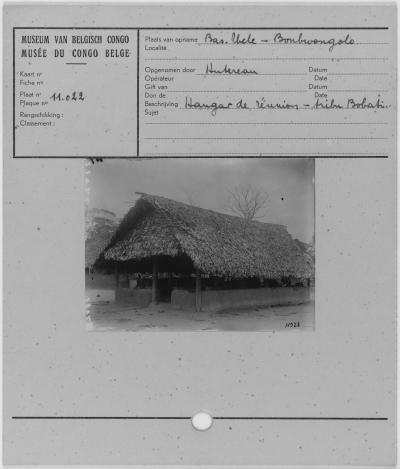 MUSEUM VAN BELGISCH CONGO
MUSÉE DU CONGO BELGE
Kaart nr
Fiche no
Plaat nr
Plaque no
11.022
Rangschikking :
Classement :
Plaats van opname
Localité
Bas. Uele - Bombwongolo
Opgenomen door
Opérateur
Hutereau
Datum
Date
Gift van
Don de
Datum
Date
Beschrijving
Sujet
Hangar de réunion - tribu Bobati
11022